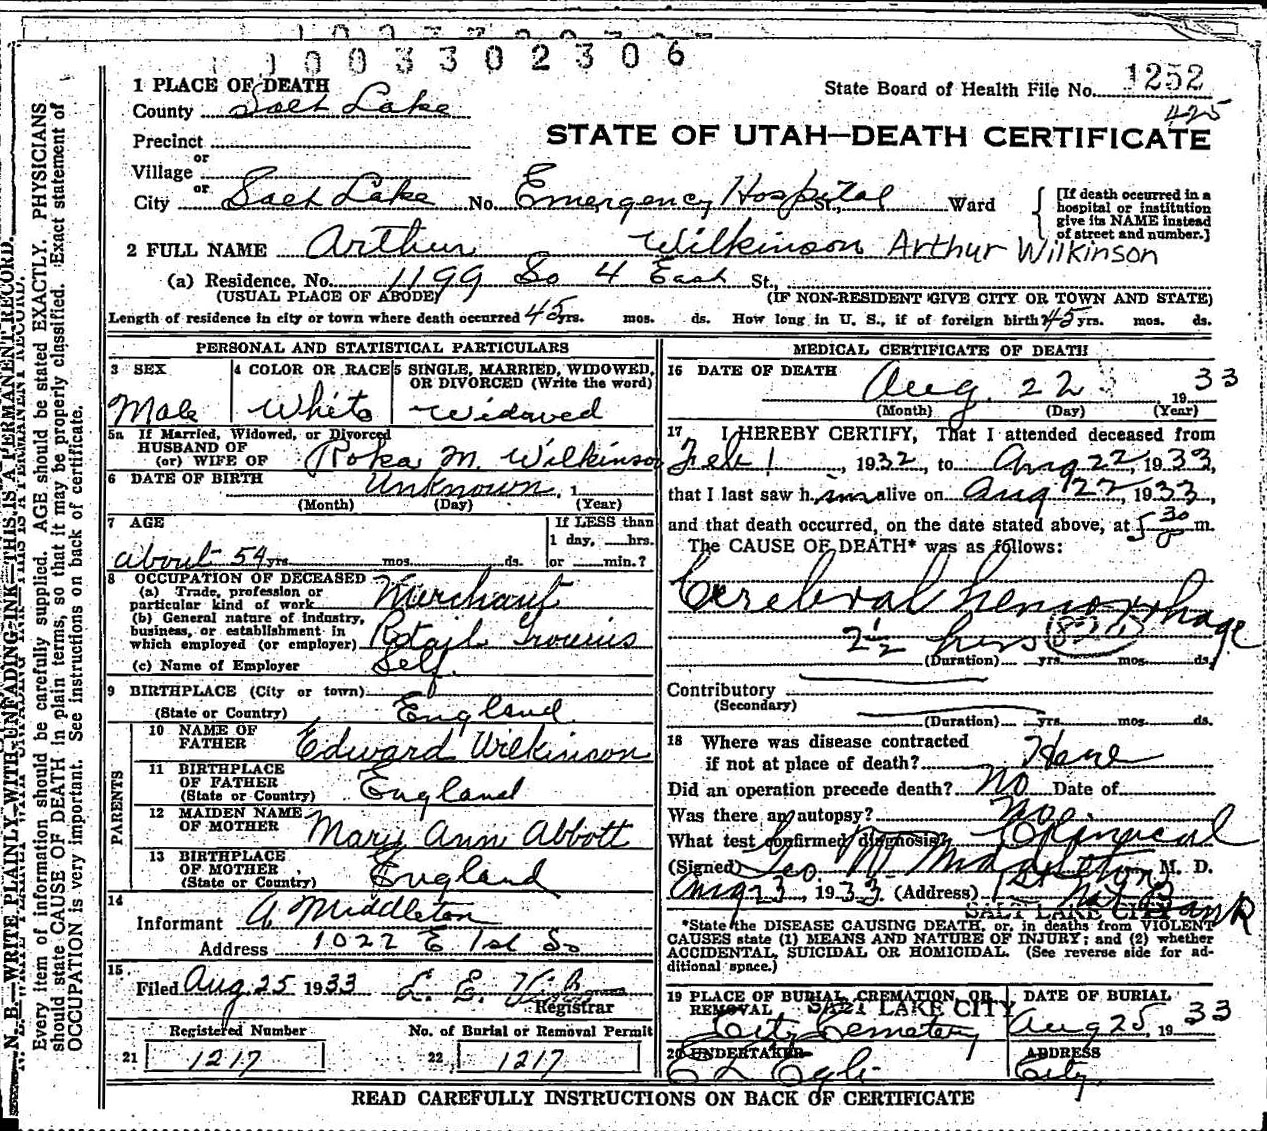 1003302306
1 PLACE OF DEATH
State Board of Health File No. 1252
County Salt Lake
425
Precinct
STATE OF UTAH—DEATH CERTIFICATE
or
Village
or
City Salt Lake No. Emergency Hospital St., Ward
[If death occurred in a hospital or institution give its NAME instead of street and number.]
2 FULL NAME Arthur Wilkinson Arthur Wilkinson
(a) Residence, No. 1199 So 4 East St.,
(USUAL PLACE OF ABODE) (IF NON-RESIDENT GIVE CITY OR TOWN AND STATE)
Length of residence in city or town where death occurred 45 yrs. mos. ds. How long in U. S., if of foreign birth? 45 yrs. mos. ds.
PERSONAL AND STATISTICAL PARTICULARS
3 SEX
Male
4 COLOR OR RACE
White
5 SINGLE, MARRIED, WIDOWED, OR DIVORCED (Write the word)
Widowed
5a If Married, Widowed, or Divorced
HUSBAND OF
(or) WIFE OF M. Wilkinson
6 DATE OF BIRTH Unknown, 1
(Month) (Day) (Year)
7 AGE
about 54 yrs. mos. ds.
If LESS than
1 day, hrs.
or min.?
8 OCCUPATION OF DECEASED
(a) Trade, profession or
particular kind of work Merchant
(b) General nature of industry,
business, or establishment in
which employed (or employer) Retail Groceries
(c) Name of Employer Self
9 BIRTHPLACE (City or town)
(State or Country) England
PARENTS
10 NAME OF
FATHER Edward Wilkinson
11 BIRTHPLACE
OF FATHER
(State or Country) England
12 MAIDEN NAME
OF MOTHER Mary Ann Abbott
13 BIRTHPLACE
OF MOTHER
(State or Country) England
14
Informant A Middleton
Address 1022 E 1st So
15
Filed Aug 25 1933
Registrar
Registered Number
21 1217
No. of Burial or Removal Permit
22 1217
MEDICAL CERTIFICATE OF DEATH
16 DATE OF DEATH Aug. 22, 1933
(Month) (Day) (Year)
17 I HEREBY CERTIFY, That I attended deceased from
Feb 1, 1932, to Aug 22, 1933,
that I last saw him alive on Aug 22, 1933,
and that death occurred, on the date stated above, at 5 30 m.
The CAUSE OF DEATH* was as follows:
Cerebral hemorrhage
2½ hrs
(Duration) yrs. mos. ds.
Contributory
(Secondary)
(Duration) yrs. mos. ds.
18 Where was disease contracted
if not at place of death?
Did an operation precede death? No Date of
Was there an autopsy? No
What test confirmed diagnosis? Clinical
(Signed) Geo. W. Middleton, M. D.
Aug 23, 1933 (Address) 1st Nat Bank
SALT LAKE CITY
*State the DISEASE CAUSING DEATH, or, in deaths from VIOLENT
CAUSES state (1) MEANS AND NATURE OF INJURY; and (2) whether
ACCIDENTAL, SUICIDAL OR HOMICIDAL. (See reverse side for ad-
ditional space.)
19 PLACE OF BURIAL, CREMATION, OR
REMOVAL SALT LAKE CITY
City Cemetery
DATE OF BURIAL
Aug 25, 1933
20 UNDERTAKER
ADDRESS
City
READ CAREFULLY INSTRUCTIONS ON BACK OF CERTIFICATE
N. B.—WRITE PLAINLY WITH UNFADING INK—THIS IS A PERMANENT RECORD.
Every item of information should be carefully supplied. AGE should be stated EXACTLY. PHYSICIANS
should state CAUSE OF DEATH in plain terms, so that it may be properly classified. Exact statement of
OCCUPATION is very important. See instructions on back of certificate.